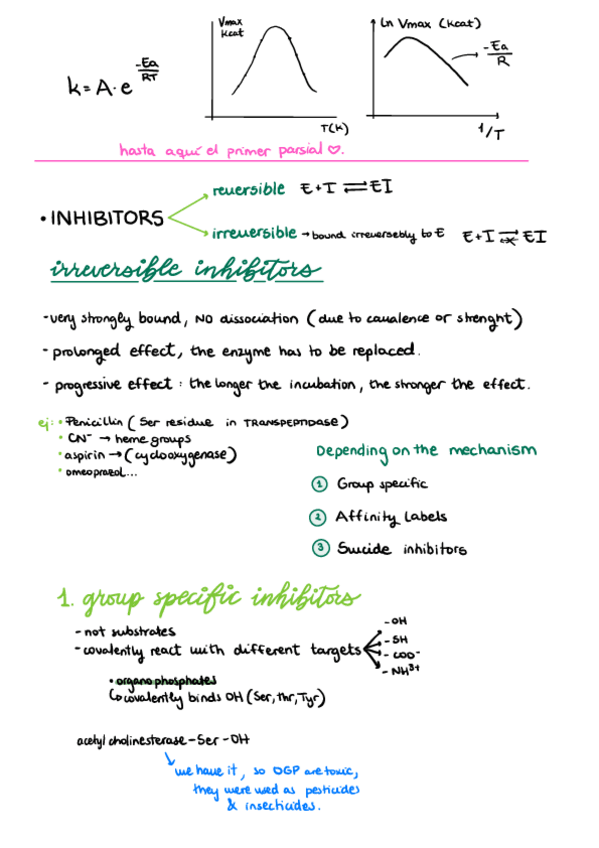 k = A · e -Ea/RT
Vmax
kcat
T(K)
Ln Vmax (kcat)
-Ea/R
1/T
hasta aquí el primer parsial ♡.
• INHIBITORS
reversible E + I ⇌ EI
irreversible → bound irreversebly to E E + I ⇌ EI
irreversible inhibitors
- very strongly bound, NO dissociation (due to covalence or strenght)
- prolonged effect, the enzyme has to be replaced.
- progressive effect : the longer the incubation, the stronger the effect.
ej: • Penicillin (Ser residue in TRANSPEPTIDASE)
• CN⁻ → heme groups
• aspirin → (cyclooxygenase)
• omeoprazol...
Depending on the mechanism
1 Group specific
2 Affinity Labels
3 Suicide inhibitors
1. group specific inhibitors
- not substrates
- covalently react with different targets
- OH
- SH
- COO⁻
- NH³⁺
• organophosphates
↳ covalently binds OH (Ser, thr, Tyr)
acetyl cholinesterase - Ser - OH
↳ we have it, so OGP are toxic,
they were used as pesticides
& insecticides.